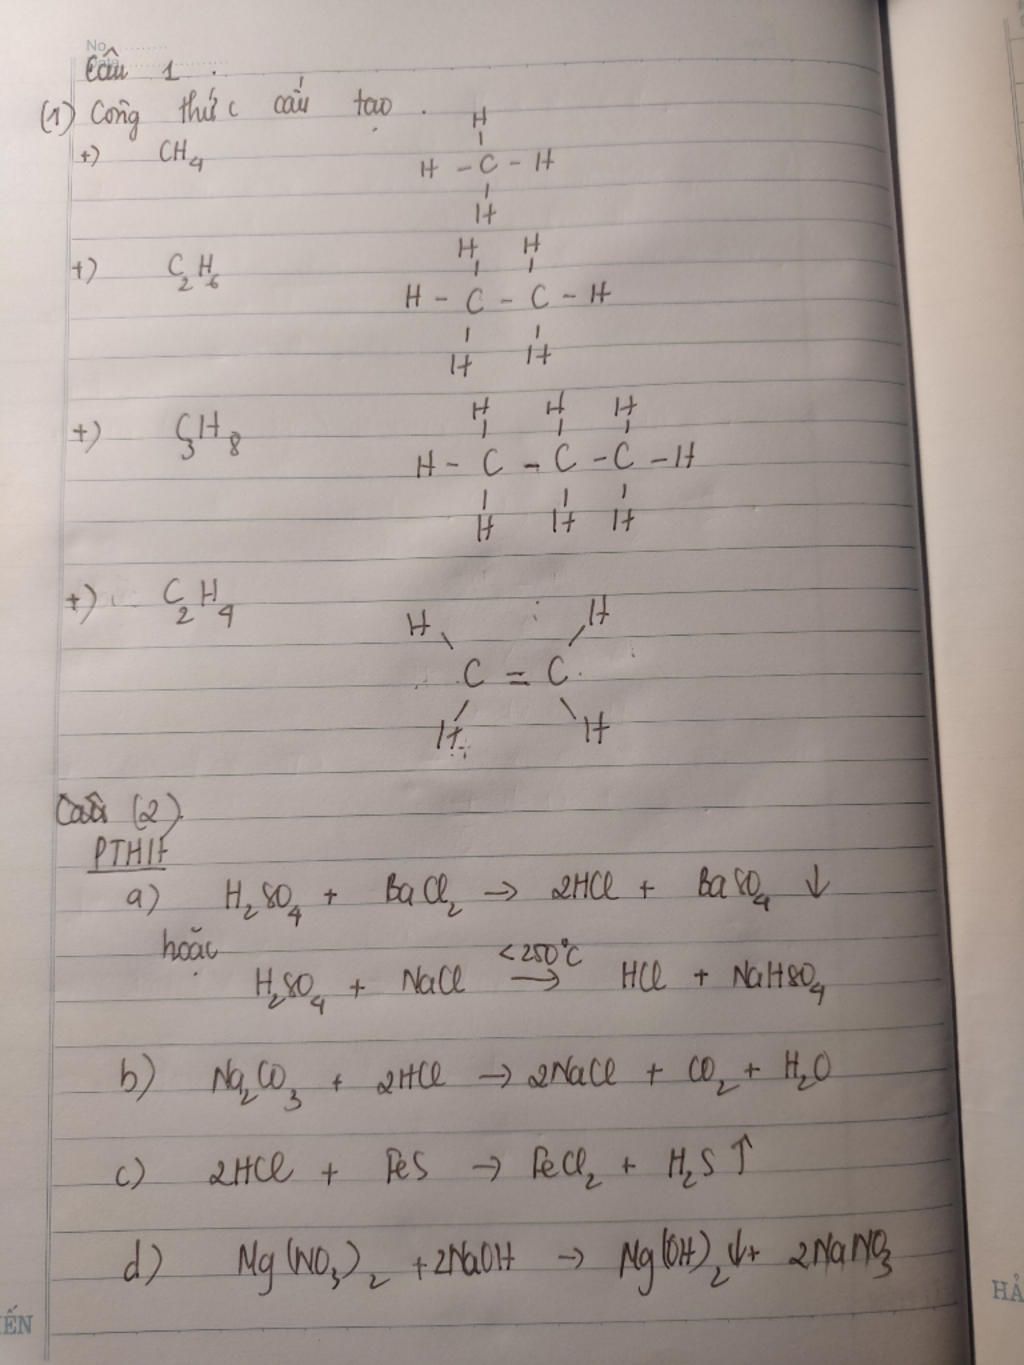 No
Date
Câu 1 .
(1) Công thức cấu tạo .
H
+) CH4
H - C - H
H
H H
+) C2H6
H - C - C - H
H H
H H H
+) C3H8
H - C - C - C - H
H H H
+) C2H4
H H
C = C
H H
Câu (2).
PTHH
a) H2SO4 + BaCl2 → 2HCl + BaSO4 ↓
hoặc
<250°C
H2SO4 + NaCl → HCl + NaHSO4
b) Na2CO3 + 2HCl → 2NaCl + CO2 + H2O
c) 2HCl + FeS → FeCl2 + H2S ↑
d) Mg(NO3)2 + 2NaOH → Mg(OH)2 ↓ + 2NaNO3
IẾN
HẢ